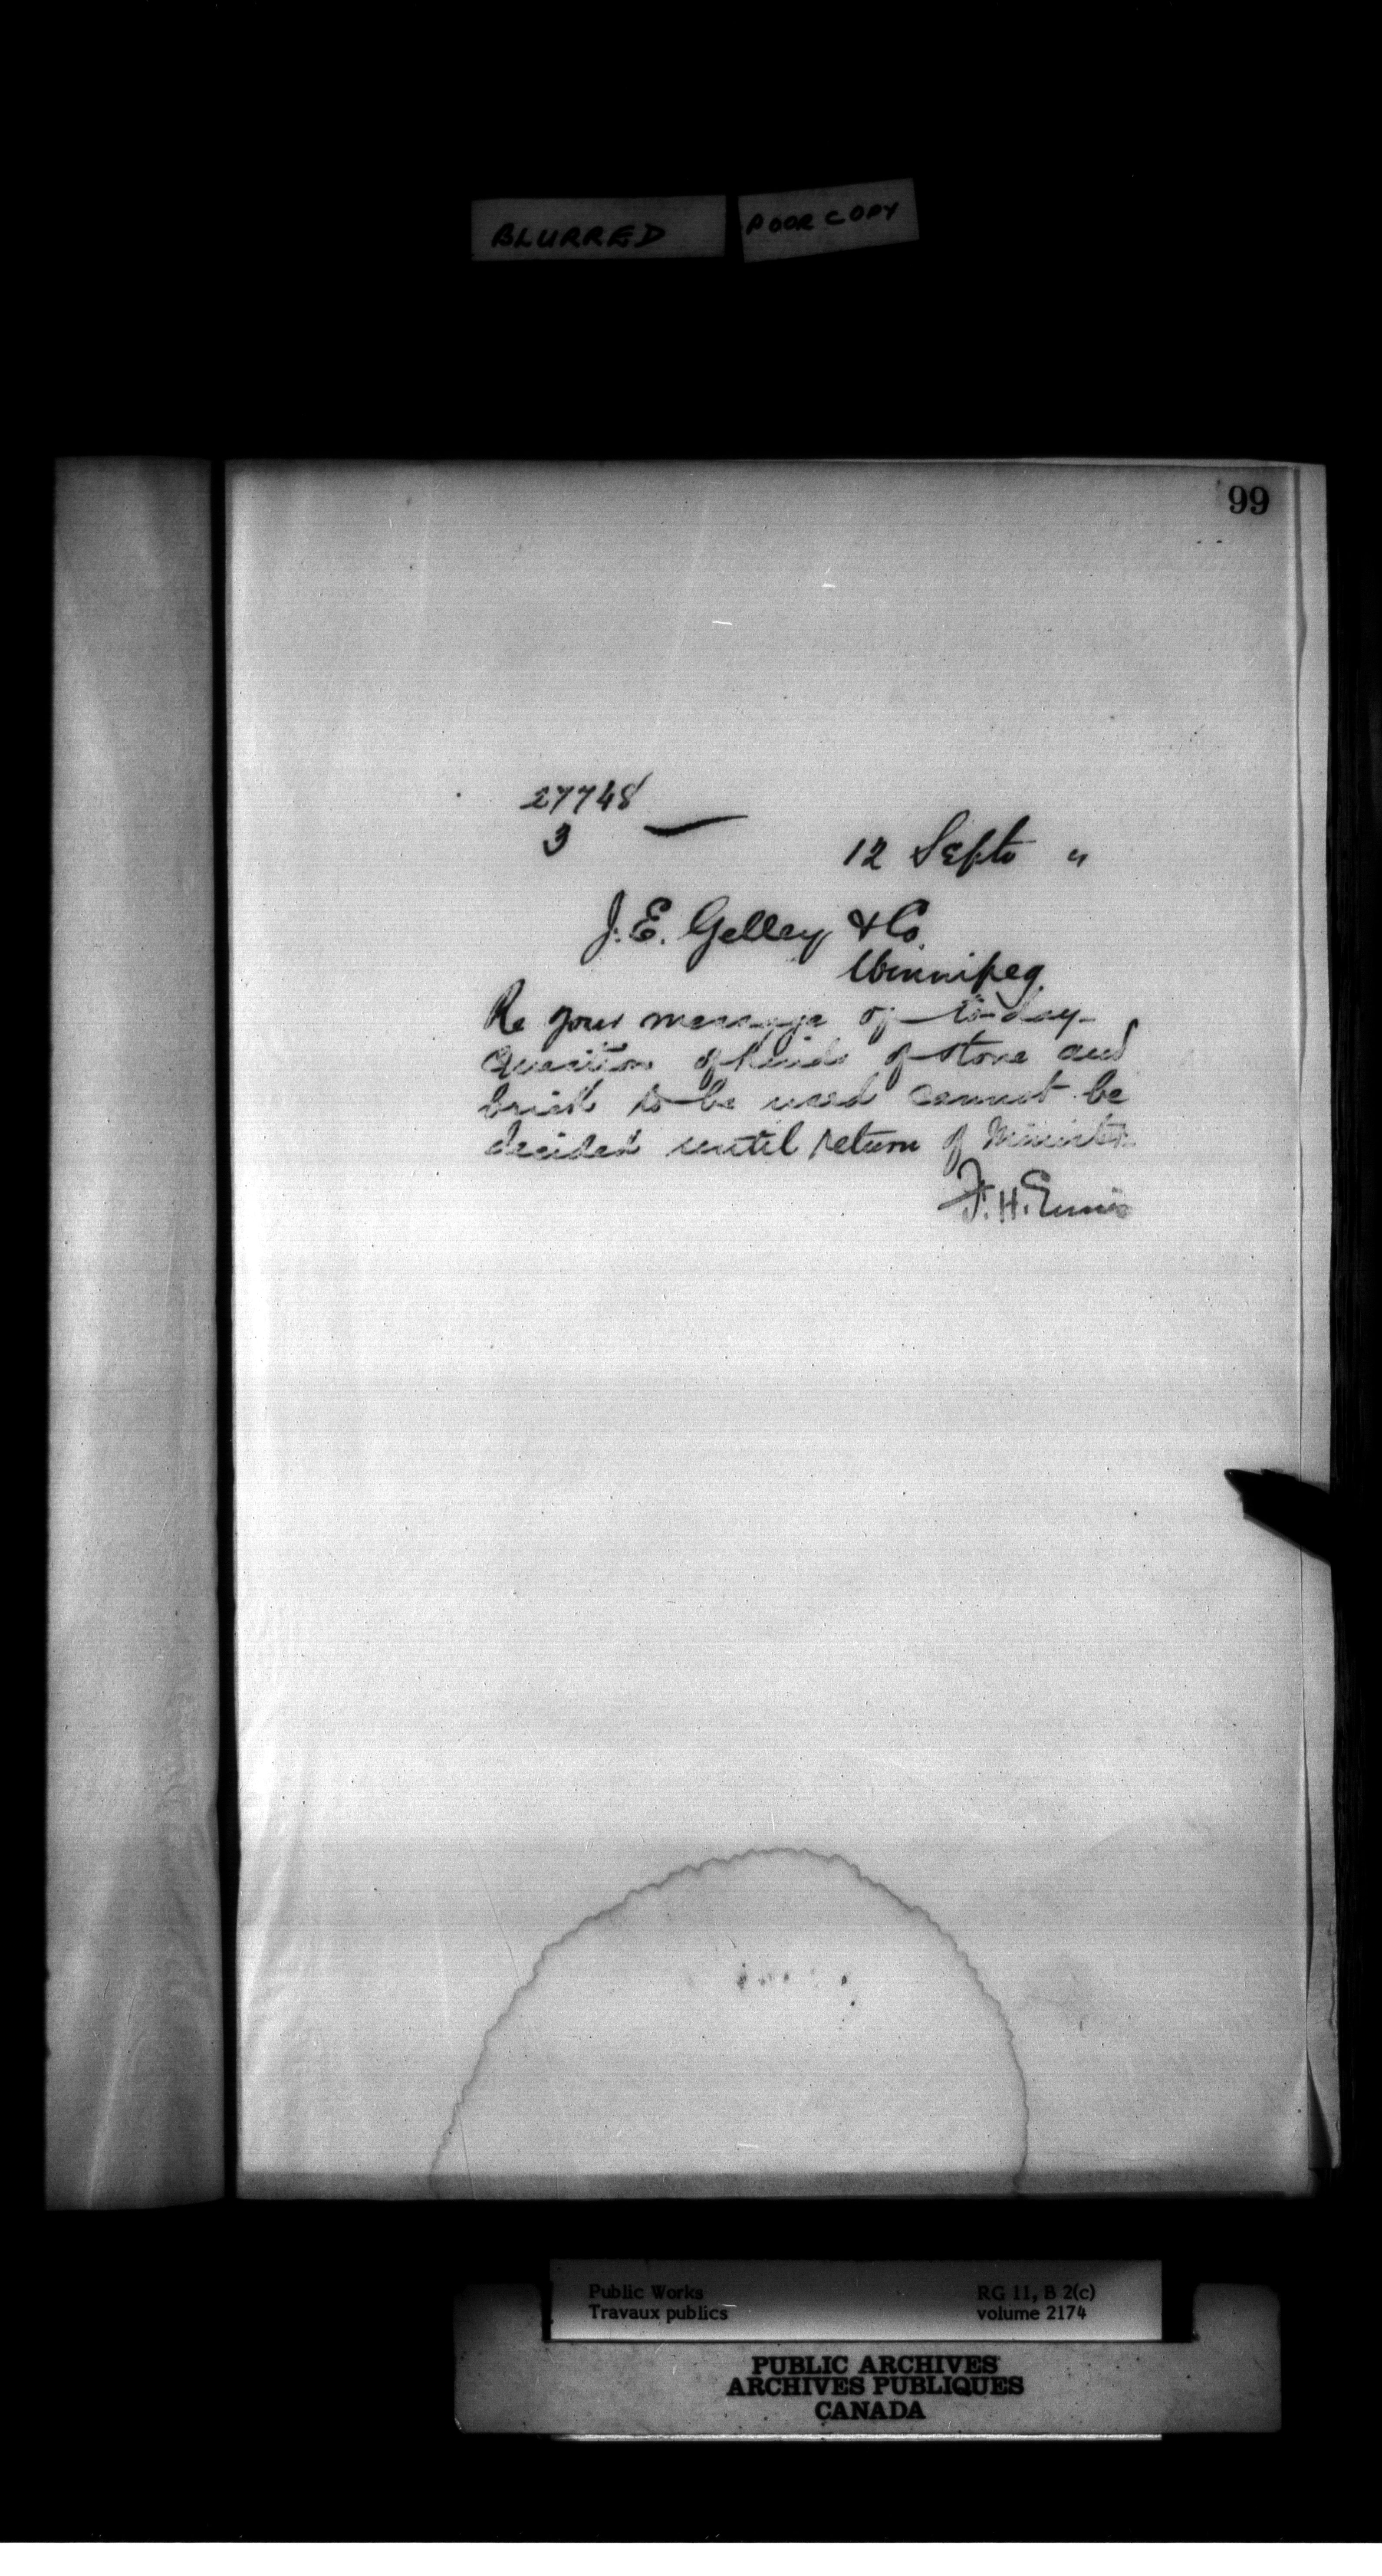 BLURRED POOR COPY
99
27748
3
12 Septo "
J. E. Gelley & Co.
Winnipeg
Re your message of to-day -
question of kinds of stone and
brick to be used cannot be
decided until return of Minister
F. H. Ennis
Public Works RG 11, B 2(c)
Travaux publics volume 2174
PUBLIC ARCHIVES
ARCHIVES PUBLIQUES
CANADA